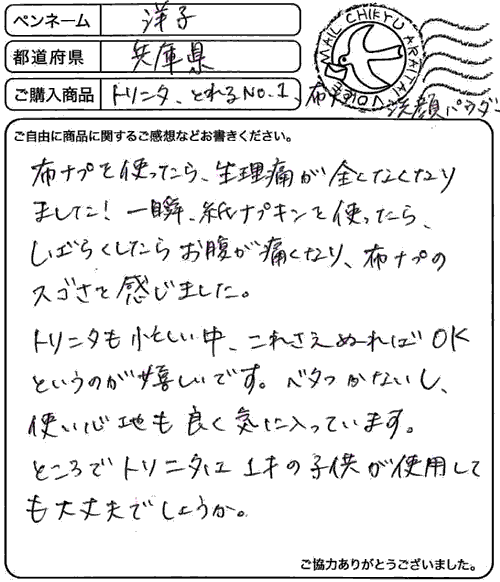 ペンネーム 洋子
都道府県 兵庫県
ご購入商品 トリニタ、とれるNO.1 布ナプ 洗顔パウダー
MAIL CHIKYU ARAITAI VOICE
ご自由に商品に関するご感想などお書きください。
布ナプを使ったら、生理痛が全くなくなり
ました! 一瞬、紙ナプキンを使ったら、
しばらくしたらお腹が痛くなり、布ナプの
スゴさを感じました。
トリニタも忙しい中、これさえぬればOK
というのが嬉しいです。ベタつかないし、
使い心地も良く気に入っています。
ところでトリニタは1才の子供が使用して
も大丈夫でしょうか。
ご協力ありがとうございました。